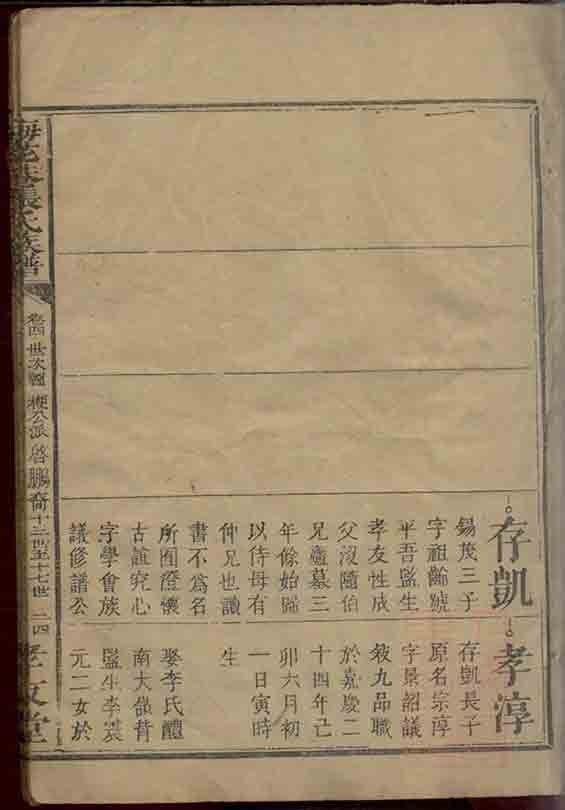 存凱
錫茂三子
字祖齡號
平吾監生
孝友性成
父沒隨伯
兄廬墓三
年餘始歸
以侍母有
仲兄也讀
書不爲名
所囿澄懷
古誼究心
字學會族
議修譜公
孝淳
存凱長子
原名宗淳
字景韶議
敘九品職
於嘉慶二
十四年己
卯六月初
一日寅時
生
娶李氏醴
南大嶺背
監生李震
元二女於
張氏族譜
卷四 世次圖 梗公派 啓鵬裔 十三世至十七世 二四
孝友堂